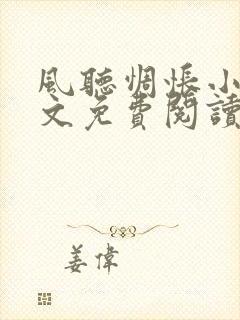 風聽惆悵小
文免費閱讀
姜偉